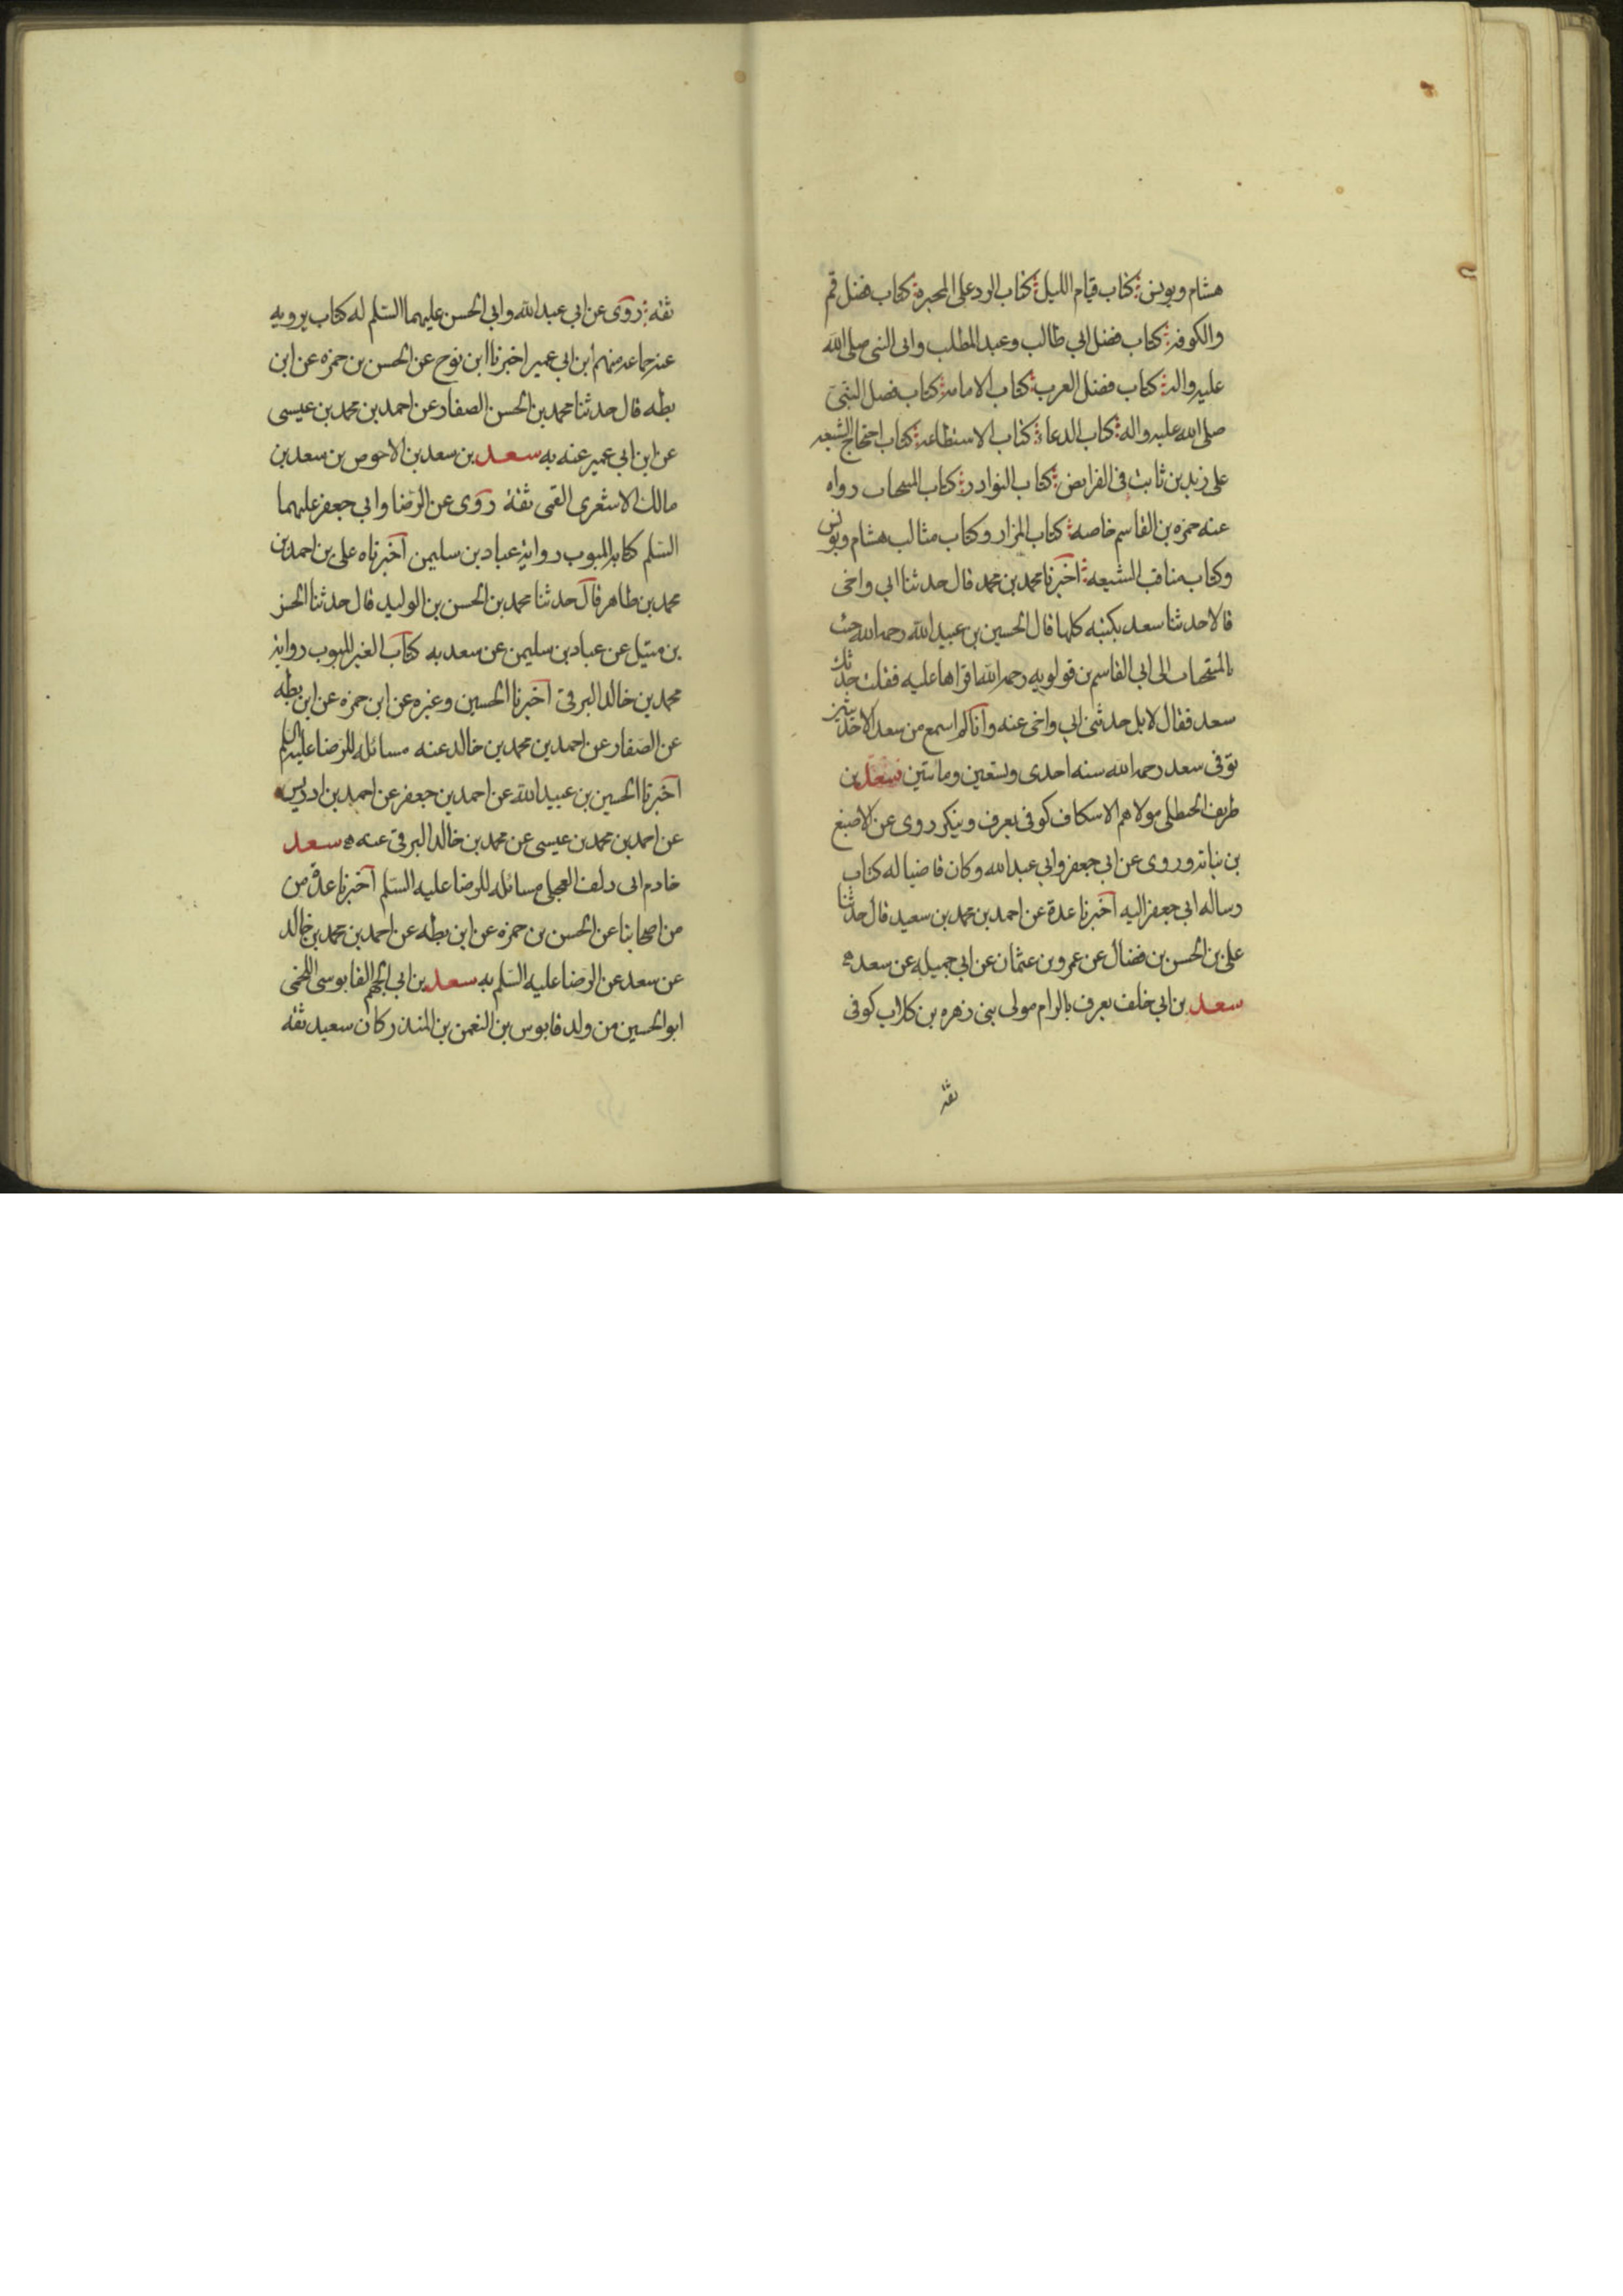 هشام ويونس كتاب قيام الليل كتاب الرد على المجبرة كتاب فضل قم
والكوفه كتاب فضل ابي طالب وعبد المطلب وابى النبي صلى الله
عليه واله كتاب فضل العرب كتاب الامامه كتاب فضل النبي
صلى الله عليه واله كتاب الدعا كتاب الاستطاعه كتاب احتجاج الشيعه
على زيد بن ثابت في الفرايض كتاب النوادر كتاب المنتخبات رواه
عنه حمزه بن القاسم خاصه كتاب المزار وكتاب مثالب هشام ويونس
وكتاب مناقب الشيعه اخبرنا محمد بن محمد قال حدثنا ابي واخي
قالا حدثنا سعد بكتبه كلها قال الحسين بن عبيد الله رحمه الله جئت
بالمنتخبات الى ابي القاسم بن قولويه رحمه الله اقراها عليه فقلت حدثك
سعد فقال لا بل حدثني ابي واخي عنه وانا لم اسمع من سعد الا حديثين
توفى سعد رحمه الله سنه احدى وتسعين ومائتين سعد بن
طريف الحنظلى مولاهم الاسكاف كوفى يعرف وينكر روى عن الاصبغ
بن نباته وروى عن ابي جعفر وابي عبد الله وكان قاضيا له كتاب
رساله ابي جعفر اليه اخبرنا عدة عن احمد بن محمد بن سعيد قال حدثنا
على بن الحسن بن فضال عن عمرو بن عثمان عن ابي جميله عن سعد ه
سعد بن ابي خلف يعرف بالزام مولى بنى زهره بن كلاب كوفى
ثقة
ثقه روى عن ابي عبد الله وابي الحسن عليهما السلم له كتاب يرويه
عنه جماعه منهم ابن ابي عمير اخبرنا ابن نوح عن الحسن بن حمزه عن ابن
بطه قال حدثنا محمد بن الحسن الصفار عن احمد بن محمد بن عيسى
عن ابن ابي عمير عنه به سعد بن سعد بن الاحوص بن سعد بن
مالك الاشعرى القمى ثقة روى عن الرضا وابي جعفر عليهما
السلم كتابه المبوب رواية عباد بن سليمن اخبرناه على بن احمد بن
محمد بن طاهر قال حدثنا محمد بن الحسن بن الوليد قال حدثنا الحسن
بن متيل عن عباد بن سليمن عن سعد به كتاب الغير المبوب رواية
محمد بن خالد البرقى اخبرنا الحسين وغيره عن ابن حمزه عن ابن بطه
عن الصفار عن احمد بن محمد بن خالد عنه مسائله للرضا عليه السلم
اخبرنا الحسين بن عبيد الله عن احمد بن جعفر عن احمد بن ادريس
عن احمد بن محمد بن عيسى عن محمد بن خالد البرقى عنه ه سعد
خادم ابى دلف العجلى مسائله للرضا عليه السلم اخبرنا عدة من
من اصحابنا عن الحسن بن حمزه عن ابن بطه عن احمد بن محمد بن خالد
عن سعد عن الرضا عليه السلم به سعد بن ابي الجهم القابوسى اللخمى
ابو الحسين من ولد قابوس بن النعمن بن المنذر كان سعيد ثقه